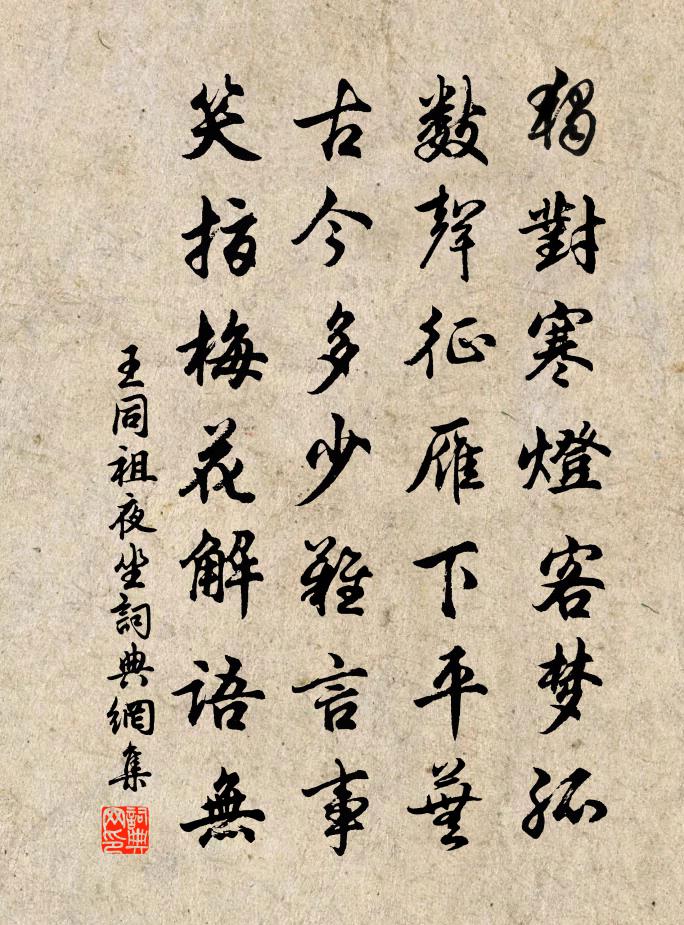 獨對寒燈客梦孤
數聲征雁下平蕪
古今多少難言事
笑指梅花解語無
王同祖夜坐詞典網集
詞典网印